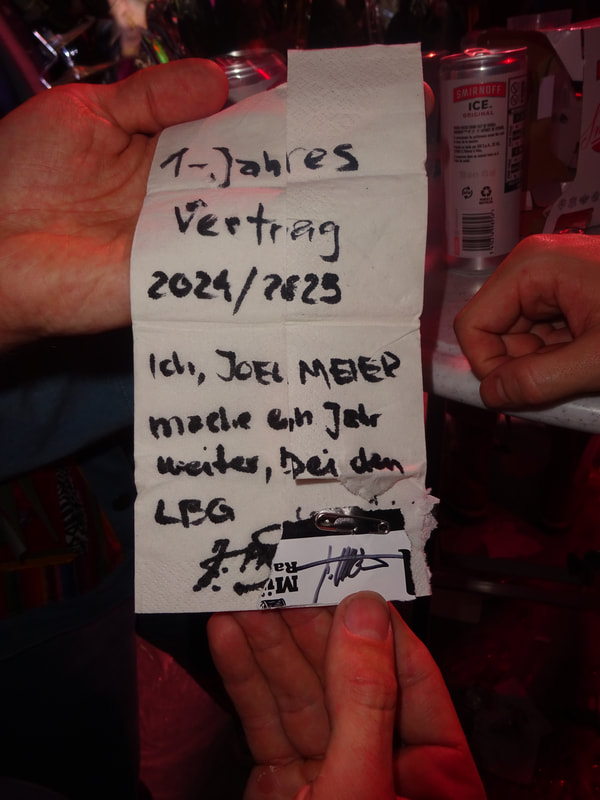 1-Jahres
Vertrag
2024/2025
Ich, JOEL MEIER
mache ein Jahr
weiter, bei den
LBG
Mü
Ra
SMIRNOFF
ICE.
ORIGINAL